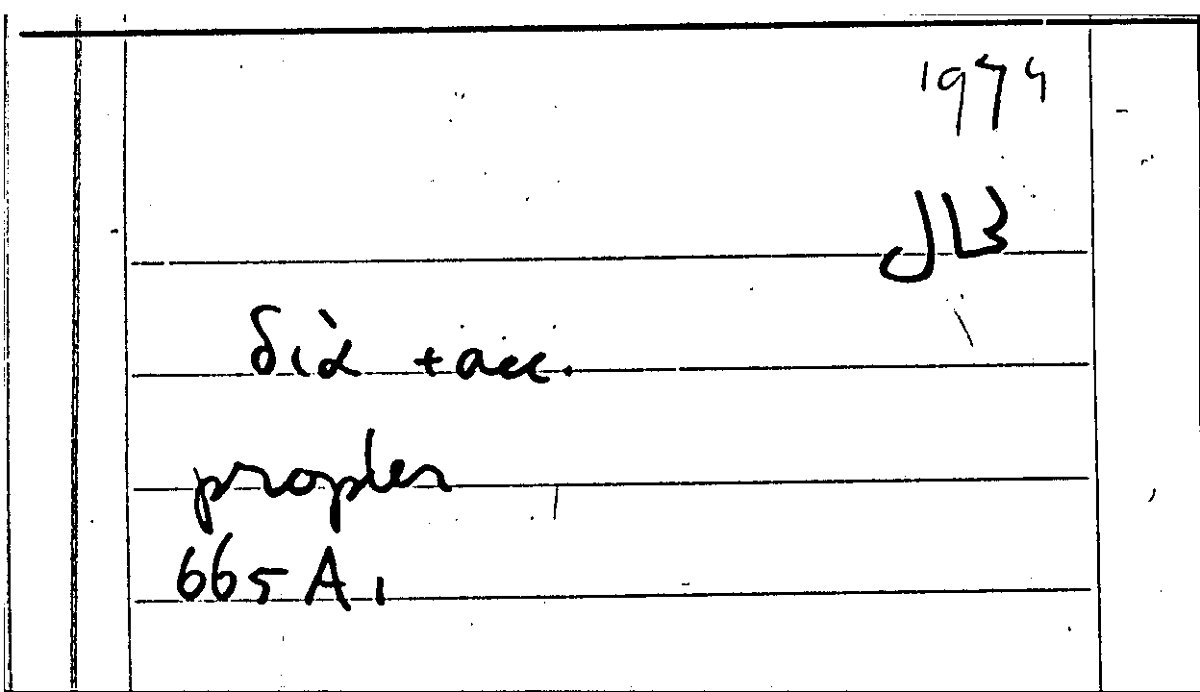 1974
JB
διὰ + acc.
propter
665 A 1